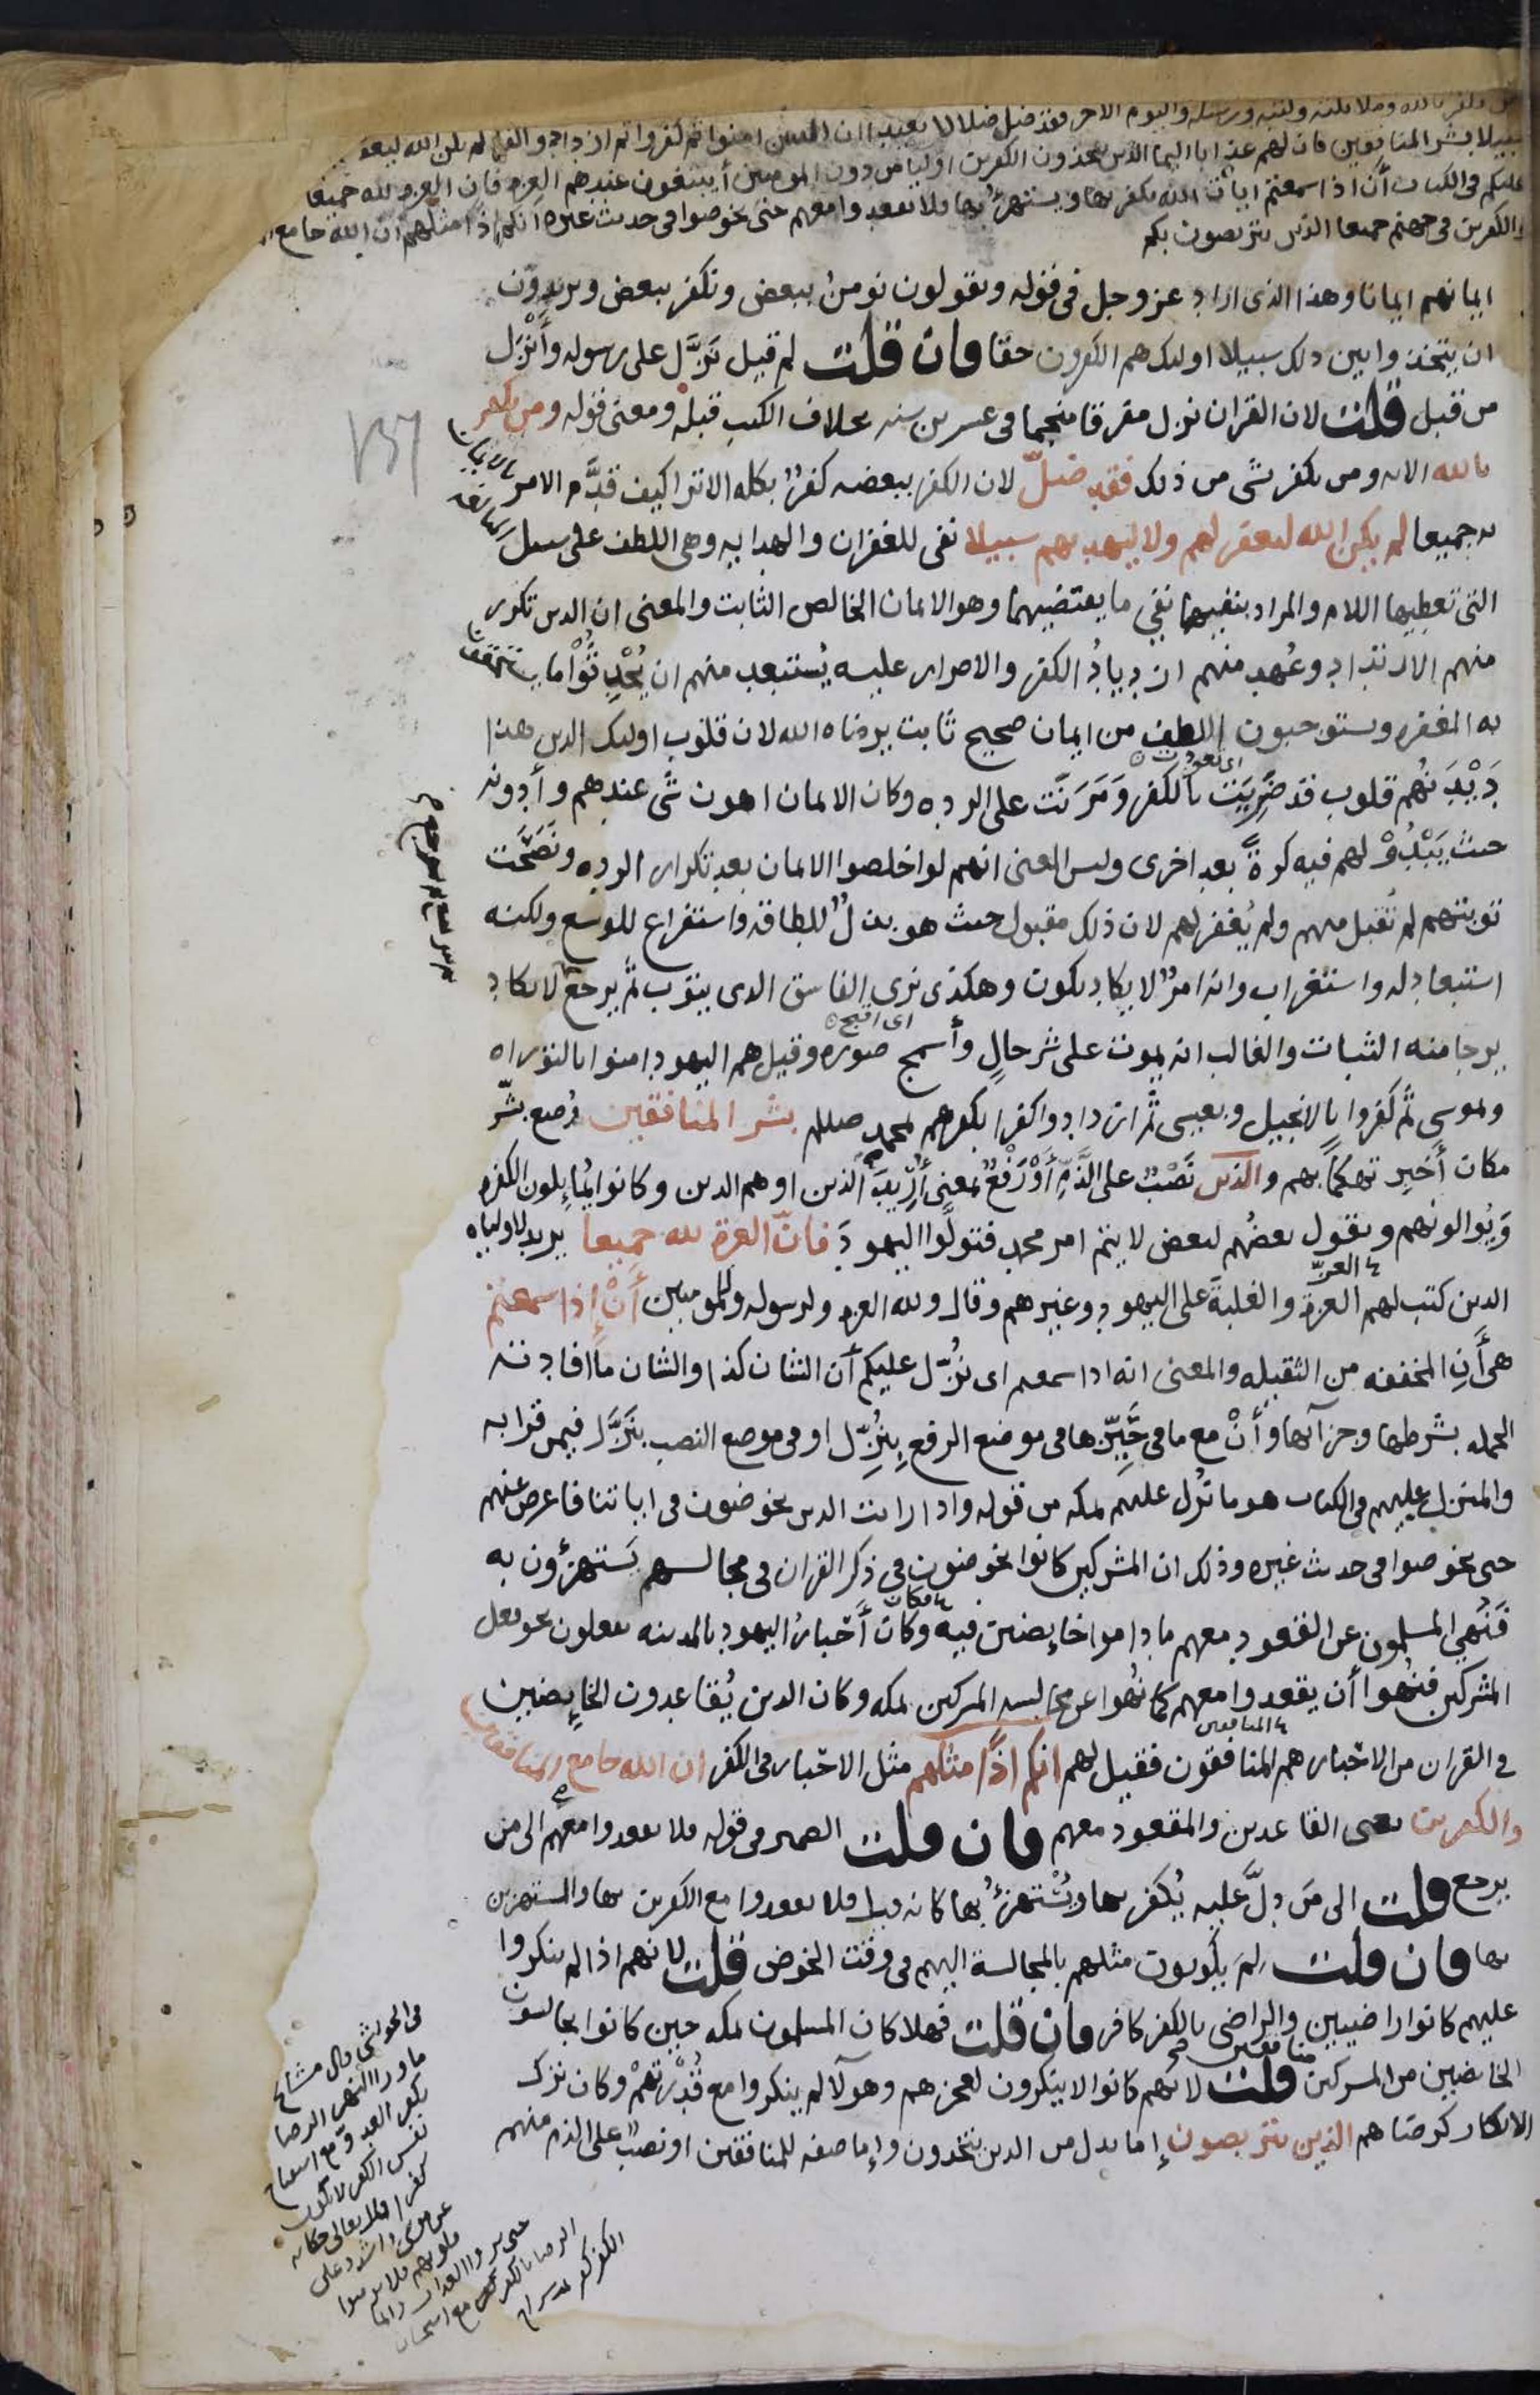 ومن يكفر بالله وملائكته وكتبه ورسله واليوم الاخر فقد ضل ضلالا بعيدا ان الذين امنوا ثم كفروا ثم ازدادوا لم يكن الله ليغفر
سبيلا بشر المنافقين بان لهم عذابا اليما الذين يتخذون الكفرين اوليا من دون المومنين أيبتغون عندهم العزه فان العزه لله جميعا
عليكم في الكتاب أن اذا سمعتم ايات الله يكفر بها ويستهزئ بها فلا تقعدوا معهم حتى يخوضوا في حديث غيره انكم اذا مثلهم ان الله جامع
والكفرين في جهنم جميعا الذين يتربصون بكم
ايمانهم ايمانا وهذا الذي اراد عز وجل في قوله ويقولون نومن ببعض ونكفر ببعض ويريدون
ان يتخذوا بين ذلك سبيلا اوليك هم الكفرون حقا فان قلت لم قيل نَزَّل على رسوله وأَنْزَل
من قبل قلت لان القران نزل مفرقا منجما في عسرين سنه بخلاف الكتب قبله ومعنى قوله ومن يكفر
بالله الايه ومن يكفر بشى من ذلك فقد ضلّ لان الكفر ببعضه كفرٌ بكله الا ترا كيف قدَّم الامر بالايمان
به جميعا لم يكن الله ليغفر لهم ولا ليهديهم سبيلا نفى للغفران والهدايه وهى اللطف على سبيل المبالغه
التى تعطيها اللام والمراد بنفيهما نفى ما يقتضيهما وهو الايمان الخالص الثابت والمعنى ان الذين تكرر
منهم الارتداد وعُهد منهم ازديادُ الكفر والاصرار عليه يُستبعد منهم ان يُحْدِثُوْا ما يستحقون
به المغفره ويستوجبون اللطف من ايمان صحيح ثابت يرضاه الله لان قلوب اوليك الذين هذا
اى تعودت
دَيْدَنُهم قلوب قد ضَرِيَت بالكفر ومَرَنَت على الرده وكان الايمان اهون شى عندهم وأدونه
حيث يَبْدُوْ لهم فيه كرةً بعد اخرى وليس المعنى انهم لو اخلصوا الايمان بعد تكرار الرده ونصَحَت
توبتهم لم تُقبل منهم ولم يُغفر لهم لان ذلك مقبول حيث هو بذلٌ للطاقه واستفراغ للوسع ولكنه
استبعاد له واستغراب وانه امرٌ لا يكاد يكون وهكذى نرى الفاسق الذى يتوب ثم يرجع لا يكاد
اى اقبح
يرجا منه الثبات والغالب انه يموت على شر حالٍ وأسمج صوره وقيل هم اليهود امنوا بالتوراه
وبموسى ثم كفروا بالانجيل وبعيسى ثم ازدادوا كفرا بكفرهم بمحمد صلعم بشر المنافقين وُضع بشّر
مكان أَخبِر تهكما بهم والذين نَصْبٌ على الذَّمِّ أَوْ رَفْعٌ بمعنى أُرِيدَ الذين او هم الذين وكانوا يُمايلون الكفره
ويُوالونهم ويقول بعضُهم لبعض لا يتم امر محمد فتولَّوا اليهودَ فانّ العزة لله جميعا يريد لاوليايه
العزّ
الذين كتب لهم العزة والغلبةَ على اليهود وغيرهم وقال ولله العزه ولرسوله وللمومنين أَنْ إِذا سمعتم
هي أَنِ المخففه من الثقيله والمعنى انه اذا سمعتم اى نُزّل عليكم أن الشان كذا والشان ما افادته
الجمله بشرطها وجزائها وأَنْ مع ما فى حَيِّزها فى موضع الرفع بِنُزِّل او فى موضع النصب بنَزَّل فيمن قرا به
والمنزل عليهم فى الكتاب هو ما نُزل عليهم بمكه من قوله واذا رايت الذين يخوضون فى اياتنا فاعرض عنهم
حتى يخوضوا فى حديث غيره وذلك ان المشركين كانوا يخوضون فى ذكر القران فى مجالسهم يَستهزؤن به
فكان
فَنُهِىَ المسلمون عن القعود معهم ما داموا خايضين فيه وكان أَحبارُ اليهود بالمدينه يفعلون نحو فعل
المشركين فنُهوا أن يقعدوا معهم كما نُهوا عن مجالسه المشركين بمكه وكان الذين يُقاعدون الخايضين
المنافقين
فى القران من الاحبار هم المنافقون فقيل لهم انكم إِذًا مثلهم مثل الاحبار فى الكفر ان الله جامع المنافقين
والكفرين يعنى القاعدين والمقعود معهم فان قلت الضمير فى قوله فلا تقعدوا معهم الى من
يرجع قلت الى مَن دلَّ عليه يُكفر بها ويُسْتهزئُ بها كانه قيل فلا تقعدوا مع الكفرين بها والمستهزين
بها فان قلت لِمَ يكونون مثلهم بالمجالسة اليهم فى وقت الخوض قلت لانهم اذا لم ينكروا
عليهم كانوا راضيين والراضى بالكفر كافر فان قلت فهلا كان المسلمون بمكه حين كانوا يجالسون
منافقين
الخايضين من المشركين قلت لانهم كانوا لا ينكرون لعجزهم وهولآ لم ينكروا مع قُدْرتهمْ وكان ترك
الانكار لرضاهم الذين يتربصون إِما بدل من الذين يتخذون وإِما صفه للمنافقين او نصبٌ على الذم منهم
في الحواشى قال مشايخ
ما ورا النهر الرضا
بكفر العدو مع استقباح
نفس الكفر لا يكون
كفرا